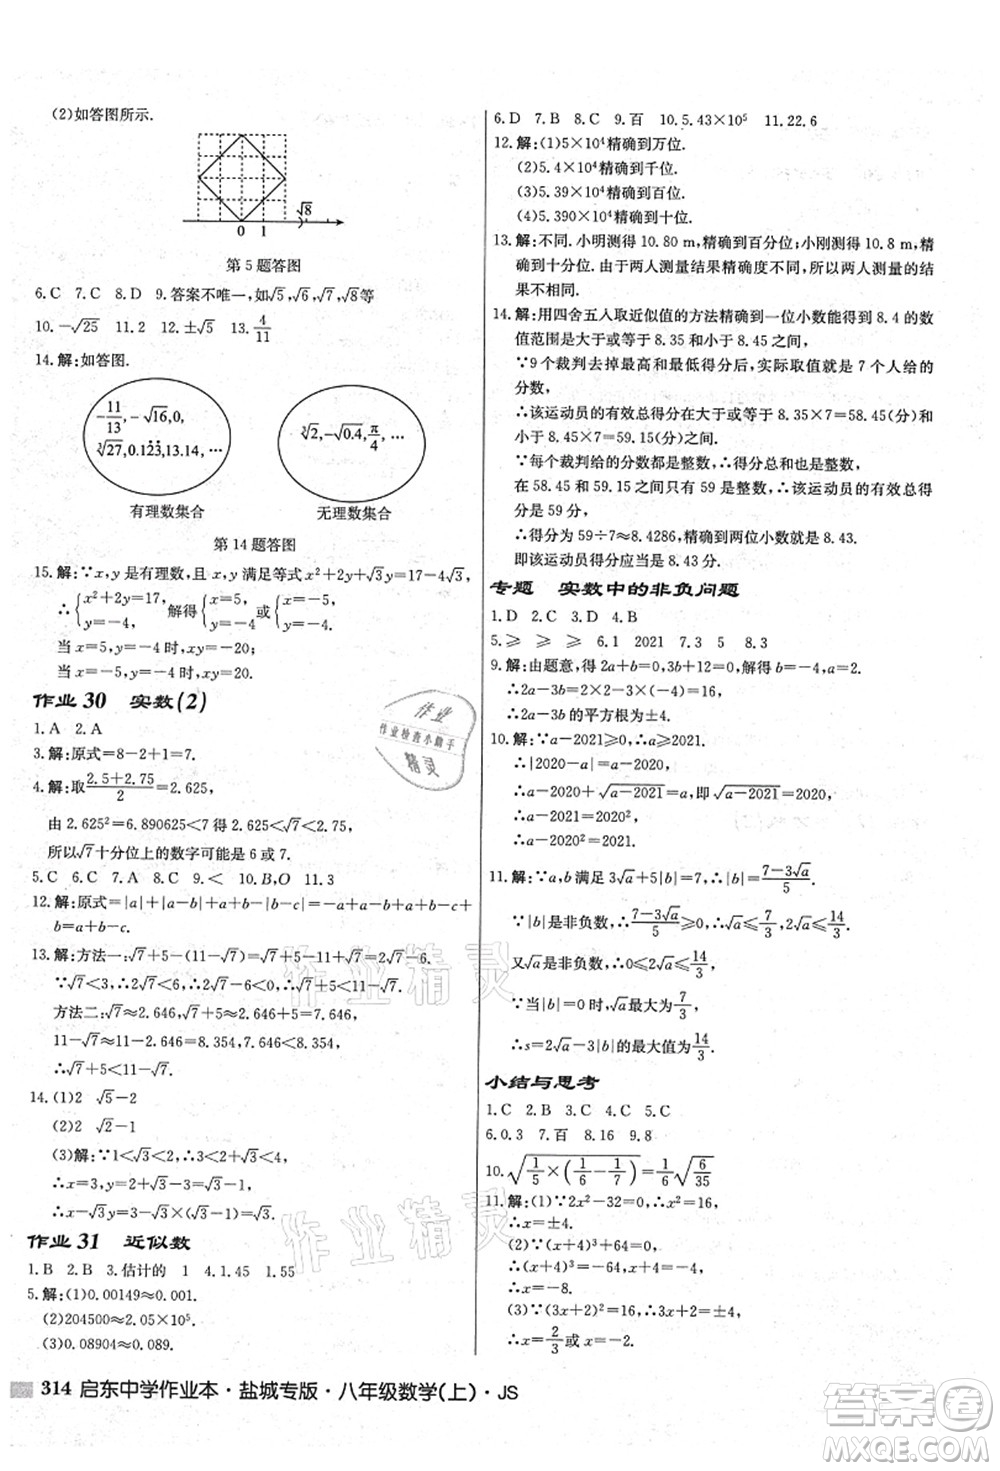 (2)如答图所示.
√8
0 1
第5题答图
6.C 7.C 8.D 9.答案不唯一,如√5,√6,√7,√8等
10.-√25 11.2 12.±√5 13.4/11
14.解:如答图.
-11/13,-√16,0,
∛27,0.1̇23̇,13.14,…
有理数集合
∛2,-√0.4,π/4,…
无理数集合
第14题答图
15.解:∵x,y是有理数,且x,y满足等式x²+2y+√3y=17-4√3,
∴{x²+2y=17, y=-4, 解得{x=5, y=-4或{x=-5, y=-4.
当x=5,y=-4时,xy=-20;
当x=-5,y=-4时,xy=20.
作业30 实数(2)
1.A 2.A
3.解:原式=8-2+1=7.
4.解:取(2.5+2.75)/2=2.625,
由2.625²=6.890625<7得2.625<√7<2.75,
所以√7十分位上的数字可能是6或7.
5.C 6.C 7.C 8.A 9.< 10.B,O 11.3
12.解:原式=|a|+|a-b|+|c|-|b-c|=-a+a-b+c+
b=a+b-c.
13.解:方法一:√7+5-(11-√7)=√7+5-11+√7=2√7-6.
∵√7<3,∴2√7<6,∴2√7-6<0,∴√7+5<11-√7.
方法二:√7≈2.646,√7+5≈2.646+5=7.646,
11-√7≈11-2.646=8.354,7.646<8.354,
∴√7+5<11-√7.
14.(1)2 √5-2
(2)2 √2-1
(3)解:∵1<√3<2,∴3<2+√3<4,
∴x=3,y=2+√3-3=√3-1,
∴x-√3y=3-√3(√3-1)=√3.
作业31 近似数
1.B 2.B 3.估计的 1 4.1.45 1.55
5.解:(1)0.00149≈0.001.
(2)204500≈2.05×10⁵.
(3)0.08904≈0.089.
6.D 7.B 8.C 9.百 10.5.43×10⁵ 11.22.6
12.解:(1)5×10⁴精确到万位.
(2)5.4×10⁴精确到千位.
(3)5.39×10⁴精确到百位.
(4)5.390×10⁴精确到十位.
13.解:不同.小明测得10.80 m,精确到百分位;小刚测得10.8 m,
精确到十分位.由于两人测量结果精确度不同,所以两人测量结
果不同.
14.解:用四舍五入取近似值的方法精确到一位小数能得到8.4的数
值范围是大于或等于8.35和小于8.45之间.
∵9个裁判去掉最高和最低得分后,实际取值就是7个人给的
分数,
∴该运动员的有效总得分在大于或等于8.35×7=58.45(分)和
小于8.45×7=59.15(分)之间.
∵每个裁判给的分数都是整数,∴得分总和也是整数,
在58.45和59.15之间只有59是整数,∴该运动员的有效总得
分是59分,
∴得分为59÷7≈8.4286,精确到两位小数是8.43.
即该运动员得分应当是8.43分.
专题 实数中的非负问题
1.D 2.C 3.D 4.B
5.≥ ≥ ≥ 6.1 2021 7.3 5 8.3
9.解:由题意,得2a+b=0,3b+12=0,解得b=-4,a=2.
∴2a-3b=2×2-3×(-4)=16,
∴2a-3b的平方根为±4.
10.解:∵a-2021≥0,∴a≥2021.
∴|2020-a|=a-2020,
∴a-2020+√a-2021=a,即√a-2021=2020,
∴a-2021=2020²,∴a-2020²=2021.
11.解:∵a,b满足3√a+5|b|=7,∴|b|=(7-3√a)/5.
∵|b|是非负数,∴(7-3√a)/5≥0,√a≤7/3,2√a≤14/3.
又√a是非负数,∴0≤2√a≤14/3.
∵s=2√a-3|b|,∴当|b|=0时,√a最大为7/3,
∴s=2√a-3|b|的最大值为14/3.
小结与思考
1.C 2.B 3.C 4.C 5.C
6.0.3 7.百 8.16 9.8
10.√(1/5×(1/6-1/7))=1/6√(6/35)
11.解:(1)∵x²=25,
∴x=±5.
(2)∵(x+4)³+64=0,
∴(x+4)³=-64,∴x+4=-4,
∴x=-8.
(3)∵(3x+2)²=16,∴3x+2=±4,
∴x=2/3或x=-2.
314 启东中学作业本·盐城专版·八年级数学(上)·JS
作业
作业检查小助手
精灵
作业精灵
作业精灵
答案圈
MXQE.COM